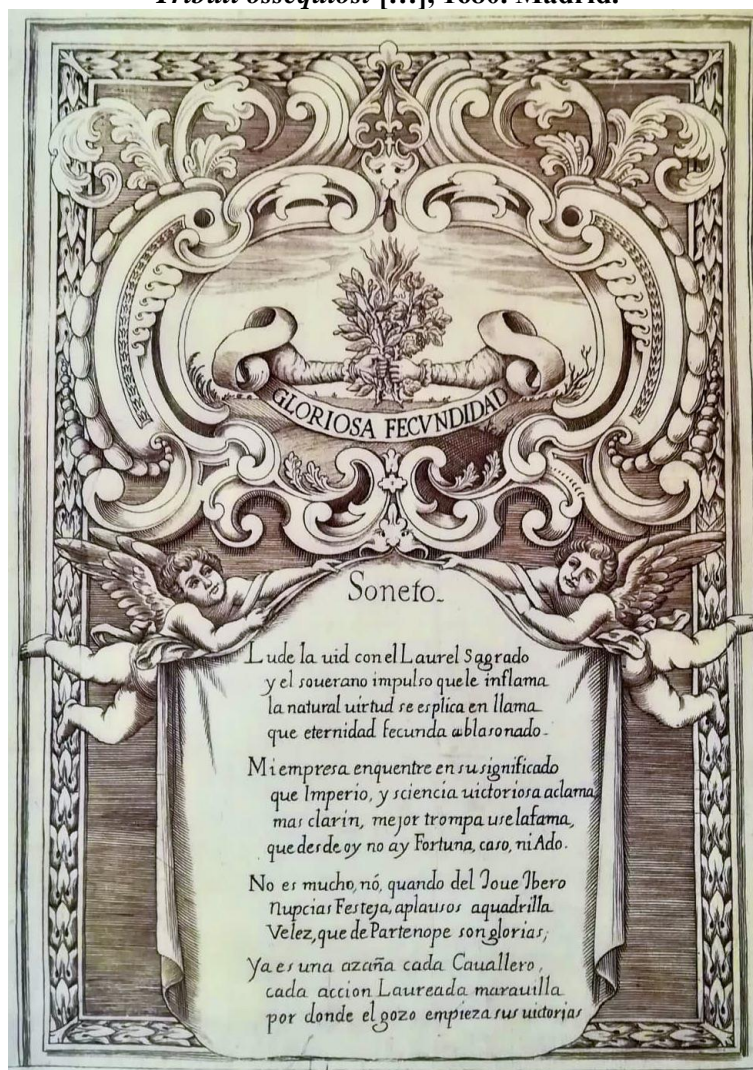 Tributi ossequiosi […], 1680. Madrid.
GLORIOSA FECVNDIDAD
Soneto
Lude la uid con el Laurel Sagrado
y el souerano impulso que le inflama
la natural uirtud se esplica en llama
que eternidad fecunda a blasonado.
Mi empresa enquentre en su significado
que Imperio, y sciencia uictoriosa aclama,
mas clarin, mejor trompa use la fama,
que desde oy no ay Fortuna, caso, ni Ado.
No es mucho, nó, quando del Joue Ibero
Nupcias Festeja, aplausos aquadrilla
Velez, que de Partenope son glorias;
Ya es una azaña cada Cauallero,
cada accion Laureada marauilla
por donde el gozo empieza sus uictorias